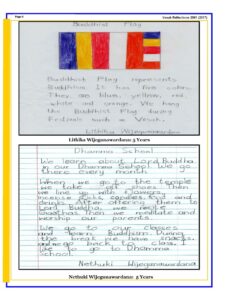 Page 6
Vesak Reflections 2561 (2017)
Buddhist Flag
Buddhist Flag represents
Buddhism. It has five colors.
They are blue, yellow, red,
white and orange. We hang
the Buddhist Flag during
Festivals such as Vesak.
Lithika Wijegunawardana
Lithika Wijegunawardana: 5 Years
Dhamma School
We learn about Lord Buddha
in our Dhamma School. We go
there every month
When we go to the temple
we take off shoes. Then
we go with flowers,
incense sticks, candles, food and
drinks. After offering them to
Lord Buddha, we recite
gathas. Then we meditate and
worship our parents.
We go to our classes
and learn Buddhism. During
the break we have snacks
and we go back to class. I
like to go to Dhamma
school.
Nethuki Wijegunawardana
Nethuki Wijegunawardana: 8 Years